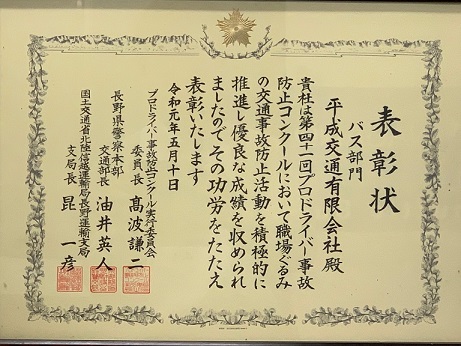 表彰状
バス部門
平成交通有限会社 殿
貴社は第四十一回プロドライバー事故
防止コンクールにおいて職場ぐるみ
の交通事故防止活動を積極的に
推進し優良な成績を収められ
ましたのでその功労をたたえ
表彰いたします
令和元年五月十日
プロドライバー事故防止コンクール実行委員会
委員長 髙波謙二
長野県警察本部
交通部長 油井英人
国土交通省北陸信越運輸局長野運輸支局
支局長 昆一彦